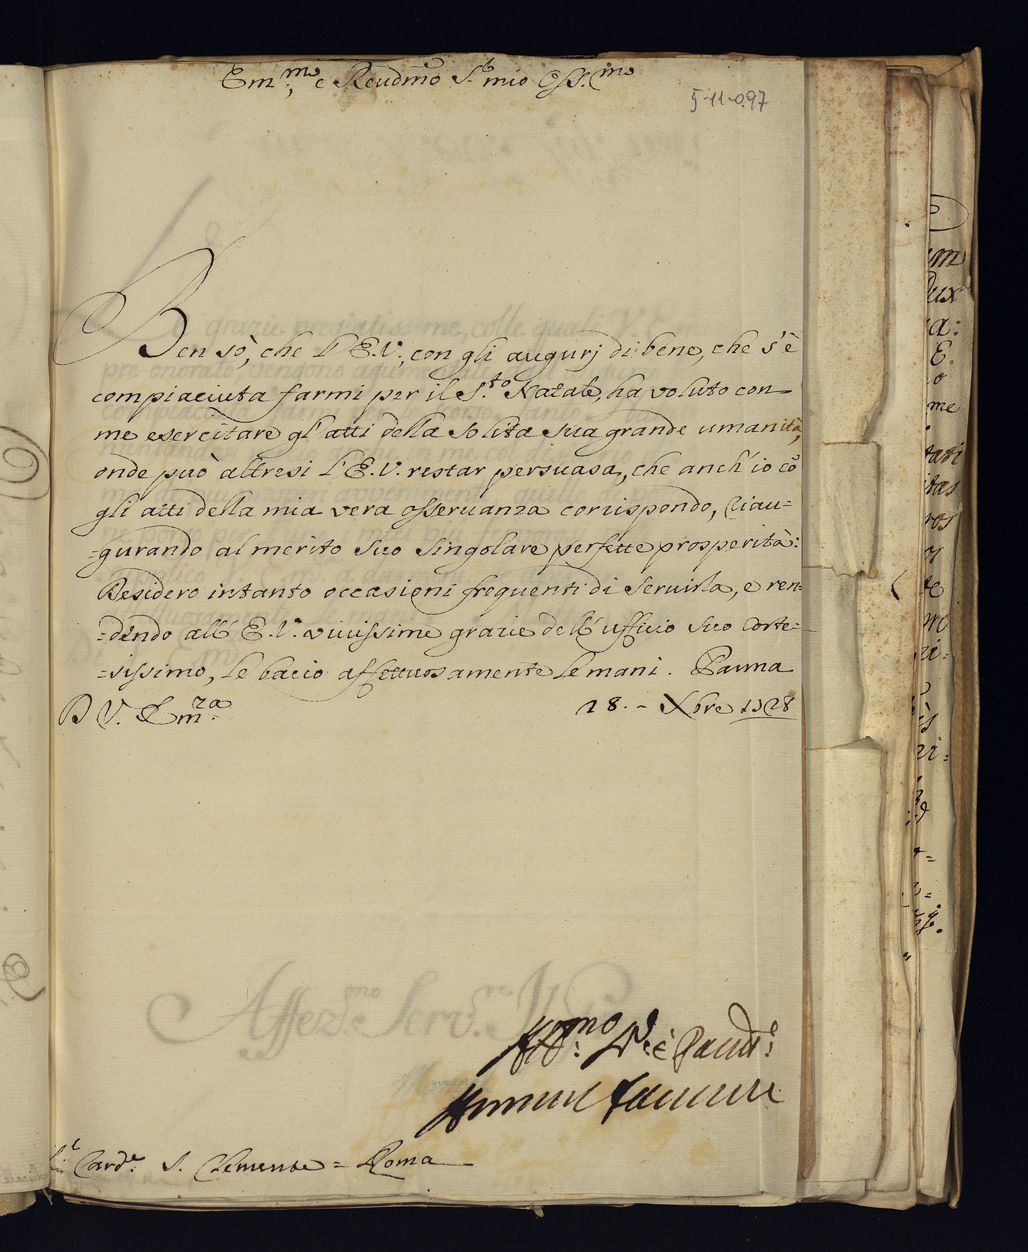 Em.mo, e Reudmo S.r mio Oss.mo
5-11-097
Ben sò, che l'E.V., con gli augurj di bene, che s'è
compiaciuta farmi per il S.to Natale, ha voluto con
me esercitare gl'atti della solita sua grande umanità,
onde può altresi l'E.V. restar persuasa, che anch'io cõ
gli atti della mia vera osseruanza corrispondo, riau-
-gurando al merito suo singolare perfette prosperità:
Desidero intanto occasioni frequenti di seruirla, e ren-
-dendo all'E.V. viuissime grazie dell'ufficio suo corte-
-sissimo, le bacio affettuosamente le mani. Parma
D V. Em.za 28. - Xbre 1728
Aff.mo S.r è Parente
Farnese
Card.e S. Clemente = Roma